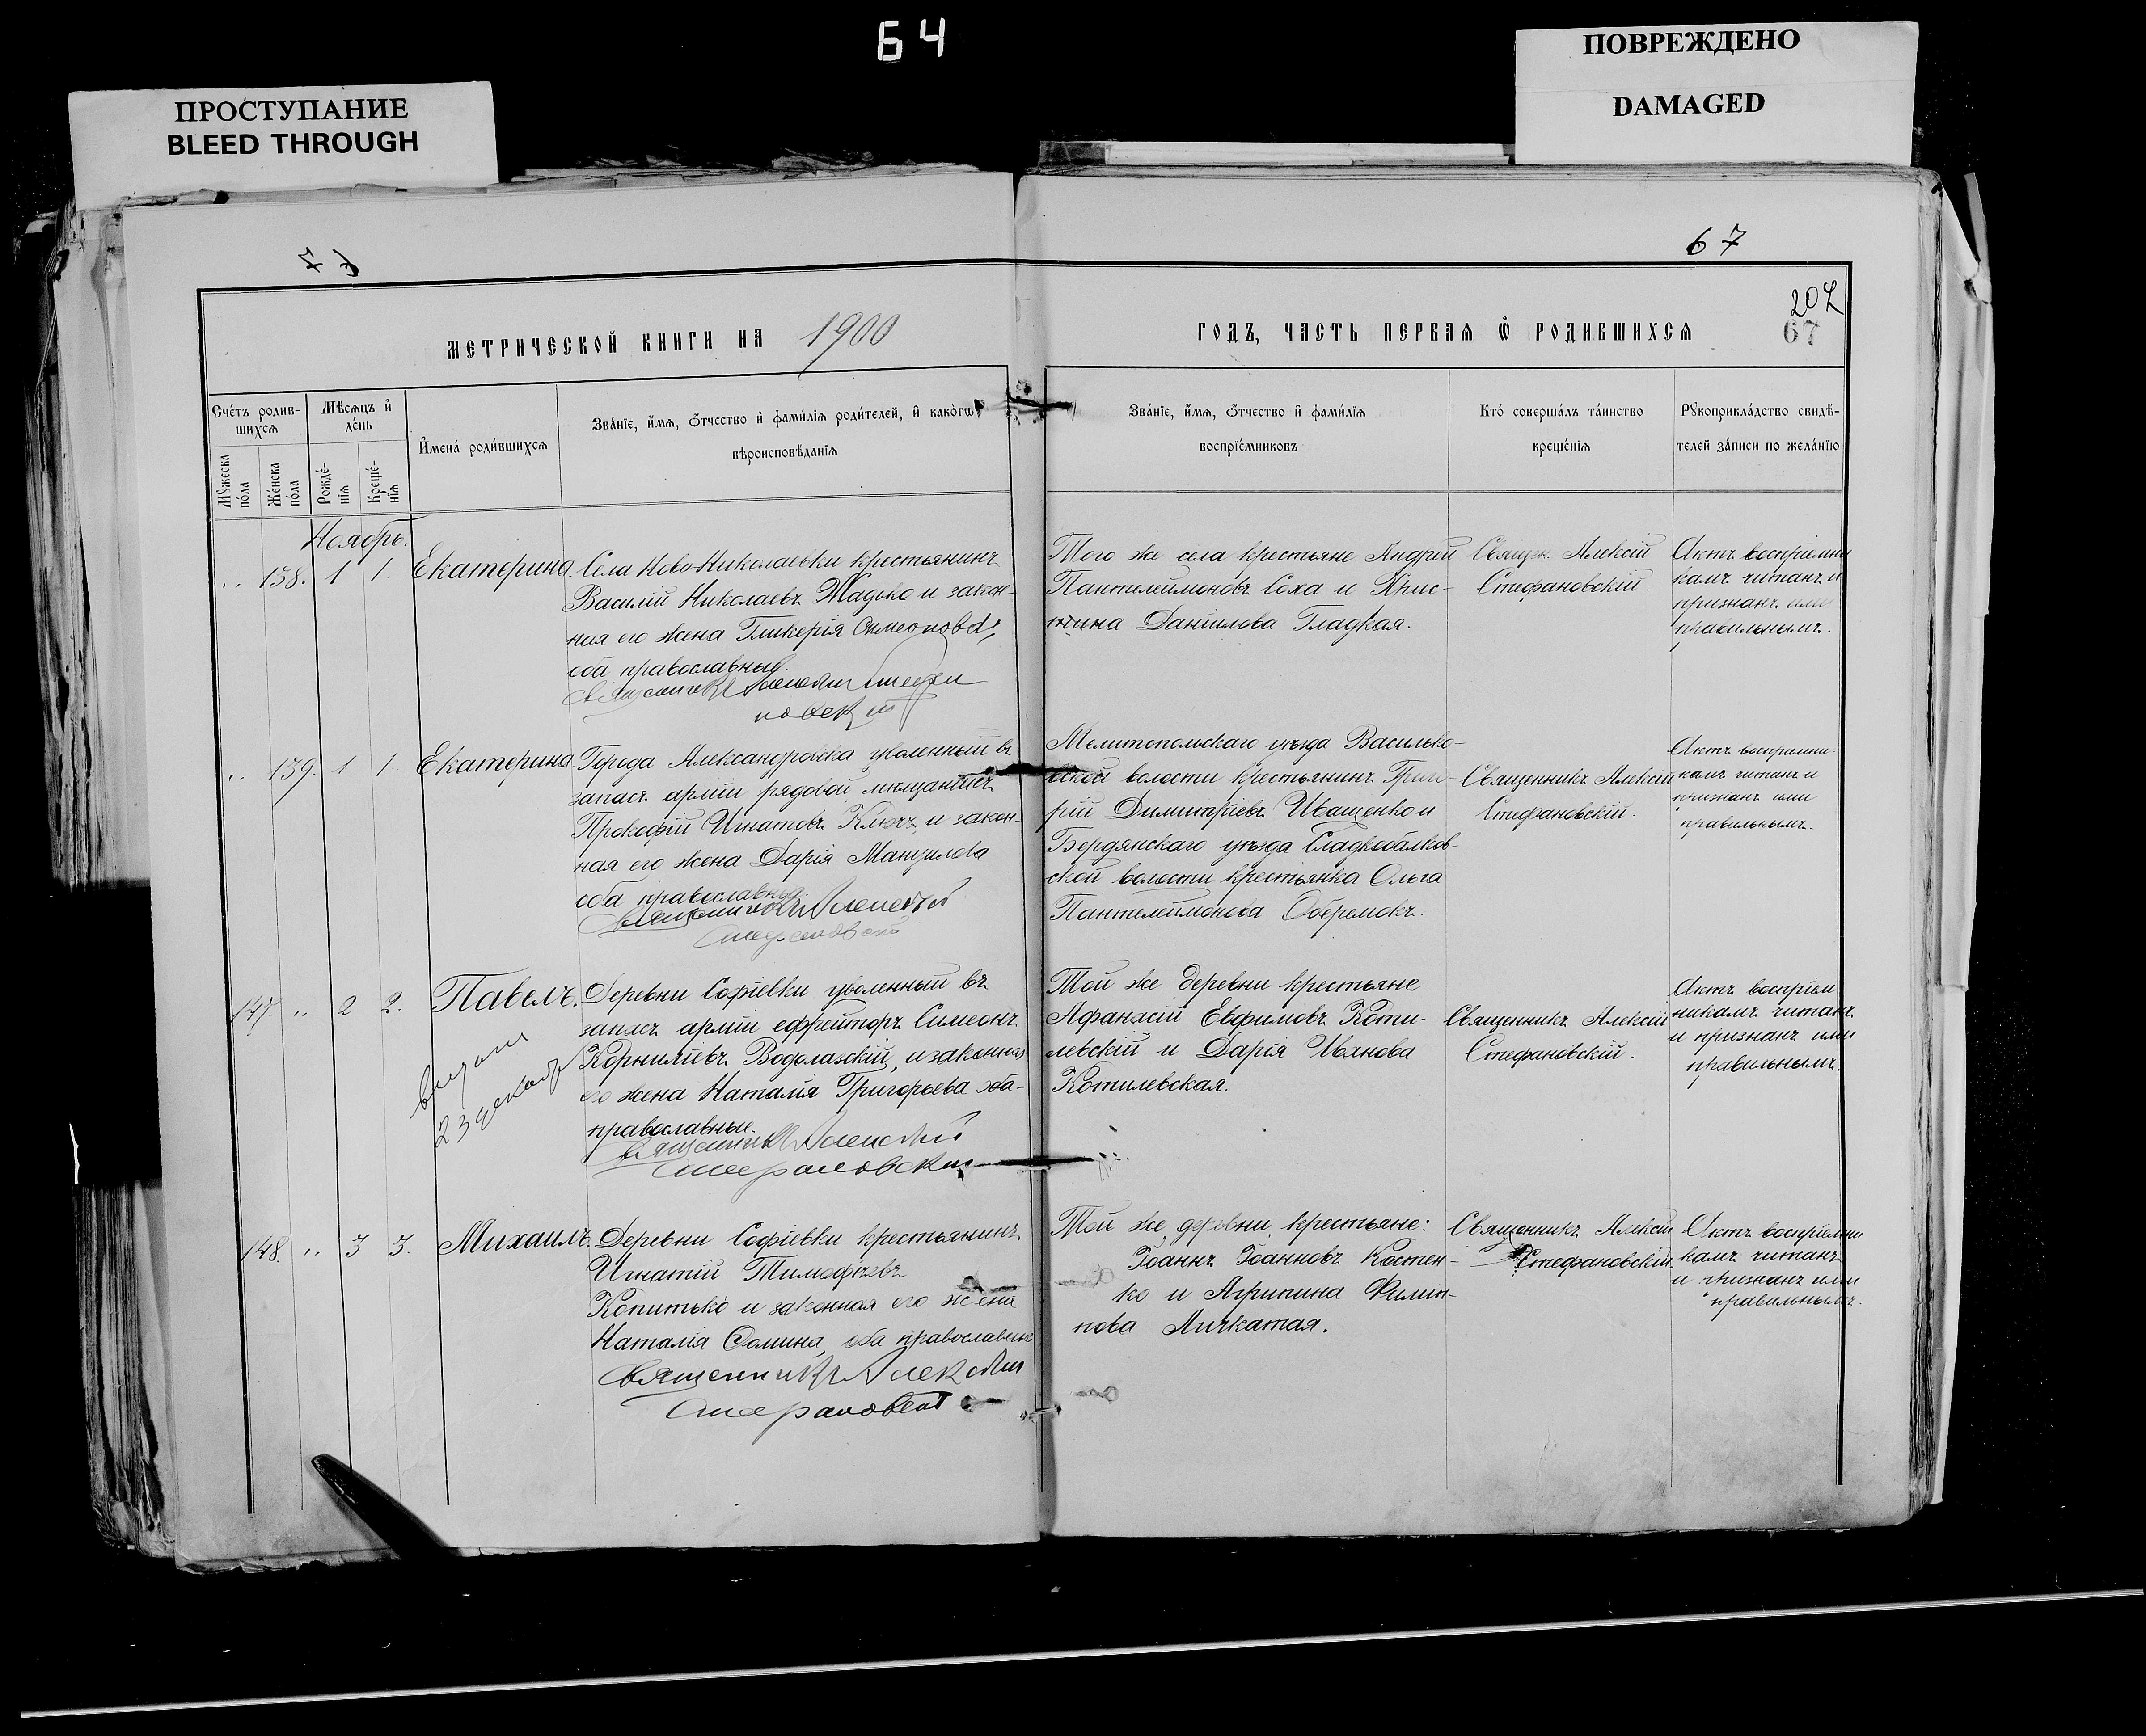 64
ПРОСТУПАНИЕ
BLEED THROUGH
ПОВРЕЖДЕНО
DAMAGED
67
207
67
МЕТРИЧЕСКОЙ КНИГИ НА 1900
ГОДЪ, ЧАСТЬ ПЕРВАѦ Ѡ РОДИВШИХСѦ
Счетъ родив-
шихсѧ
Мѣсѧцъ и
день
Мужеска
пола
Женска
пола
Рожде-
нїѧ
Креще-
нїѧ
Имена родившихсѧ
Званїе, имѧ, ѻтчество и фамилїѧ родителей, и какогѡ
вѣроисповѣданїѧ
Званїе, имѧ, ѻтчество и фамилїѧ
воспрїемниковъ
Кто совершалъ таинство
крещенїѧ
Рукоприкладство свидѣ-
телей записи по желанїю
Ноябрь.
„ 138. 1 1. Екатерина.
Села Ново-Николаевки крестьянинъ
Василій Николаевъ Жадько и закон-
ная его жена Гликерія Симеонова,
оба православные.
Священникъ Алексій Стефа
новскій
Того же села крестьяне Андрей
Пантелеймоновъ Соха и Хрис-
тина Даніилова Гладкая.
Священ. Алексій
Стефановскій.
Актъ воспріемни
камъ читанъ и
признанъ ими
правильнымъ.
„ 139. 1 1 Екатерина
Города Александровска уволенный въ
запасъ арміи рядовой мѣщанинъ
Прокофій Игнатовъ Ключъ, и закон-
ная его жена Дарія Мануилова
оба православные.
Священникъ Алексій
Стефановскій
Мелитопольскаго уѣзда Василько-
вской волости крестьянинъ Григо-
рій Димитріевъ Иващенко и
Бердянскаго уѣзда Сладкобалков-
ской волости крестьянка Ольга
Пантелеймонова Оберемокъ.
Священникъ Алексій
Стефановскій.
Актъ воспріемни-
камъ читанъ и
признанъ ими
правильнымъ.
147. „ 2 2. Павелъ.
23 декабр
Деревни Софіевки уволенный въ
запасъ арміи ефрейторъ Симеонъ
Корниліевъ Водолазскій, и законная
его жена Наталія Григорьева оба-
православные.
Священникъ Алексій
Стефановскій
Той же деревни крестьяне
Афанасій Евфимовъ Коти-
левскій и Дарія Иванова
Котилевская.
Священникъ Алексій
Стефановскій.
Актъ воспріем
никамъ читанъ
и признанъ ими
правильнымъ.
148. „ 3 3. Михаилъ.
Деревни Софіевки крестьянинъ
Игнатій Тимофѣевъ
Копитько и законная его жена
Наталія Фомина, оба православные
Священникъ Алексій
Стефановскій
Той же деревни крестьяне:
Іоаннъ Іоанновъ Костен-
ко и Агрипина Филип-
пова Личкатая.
Священникъ Алексій
Стефановскій.
Актъ воспріемни
камъ читанъ
и признанъ ими
правильнымъ.